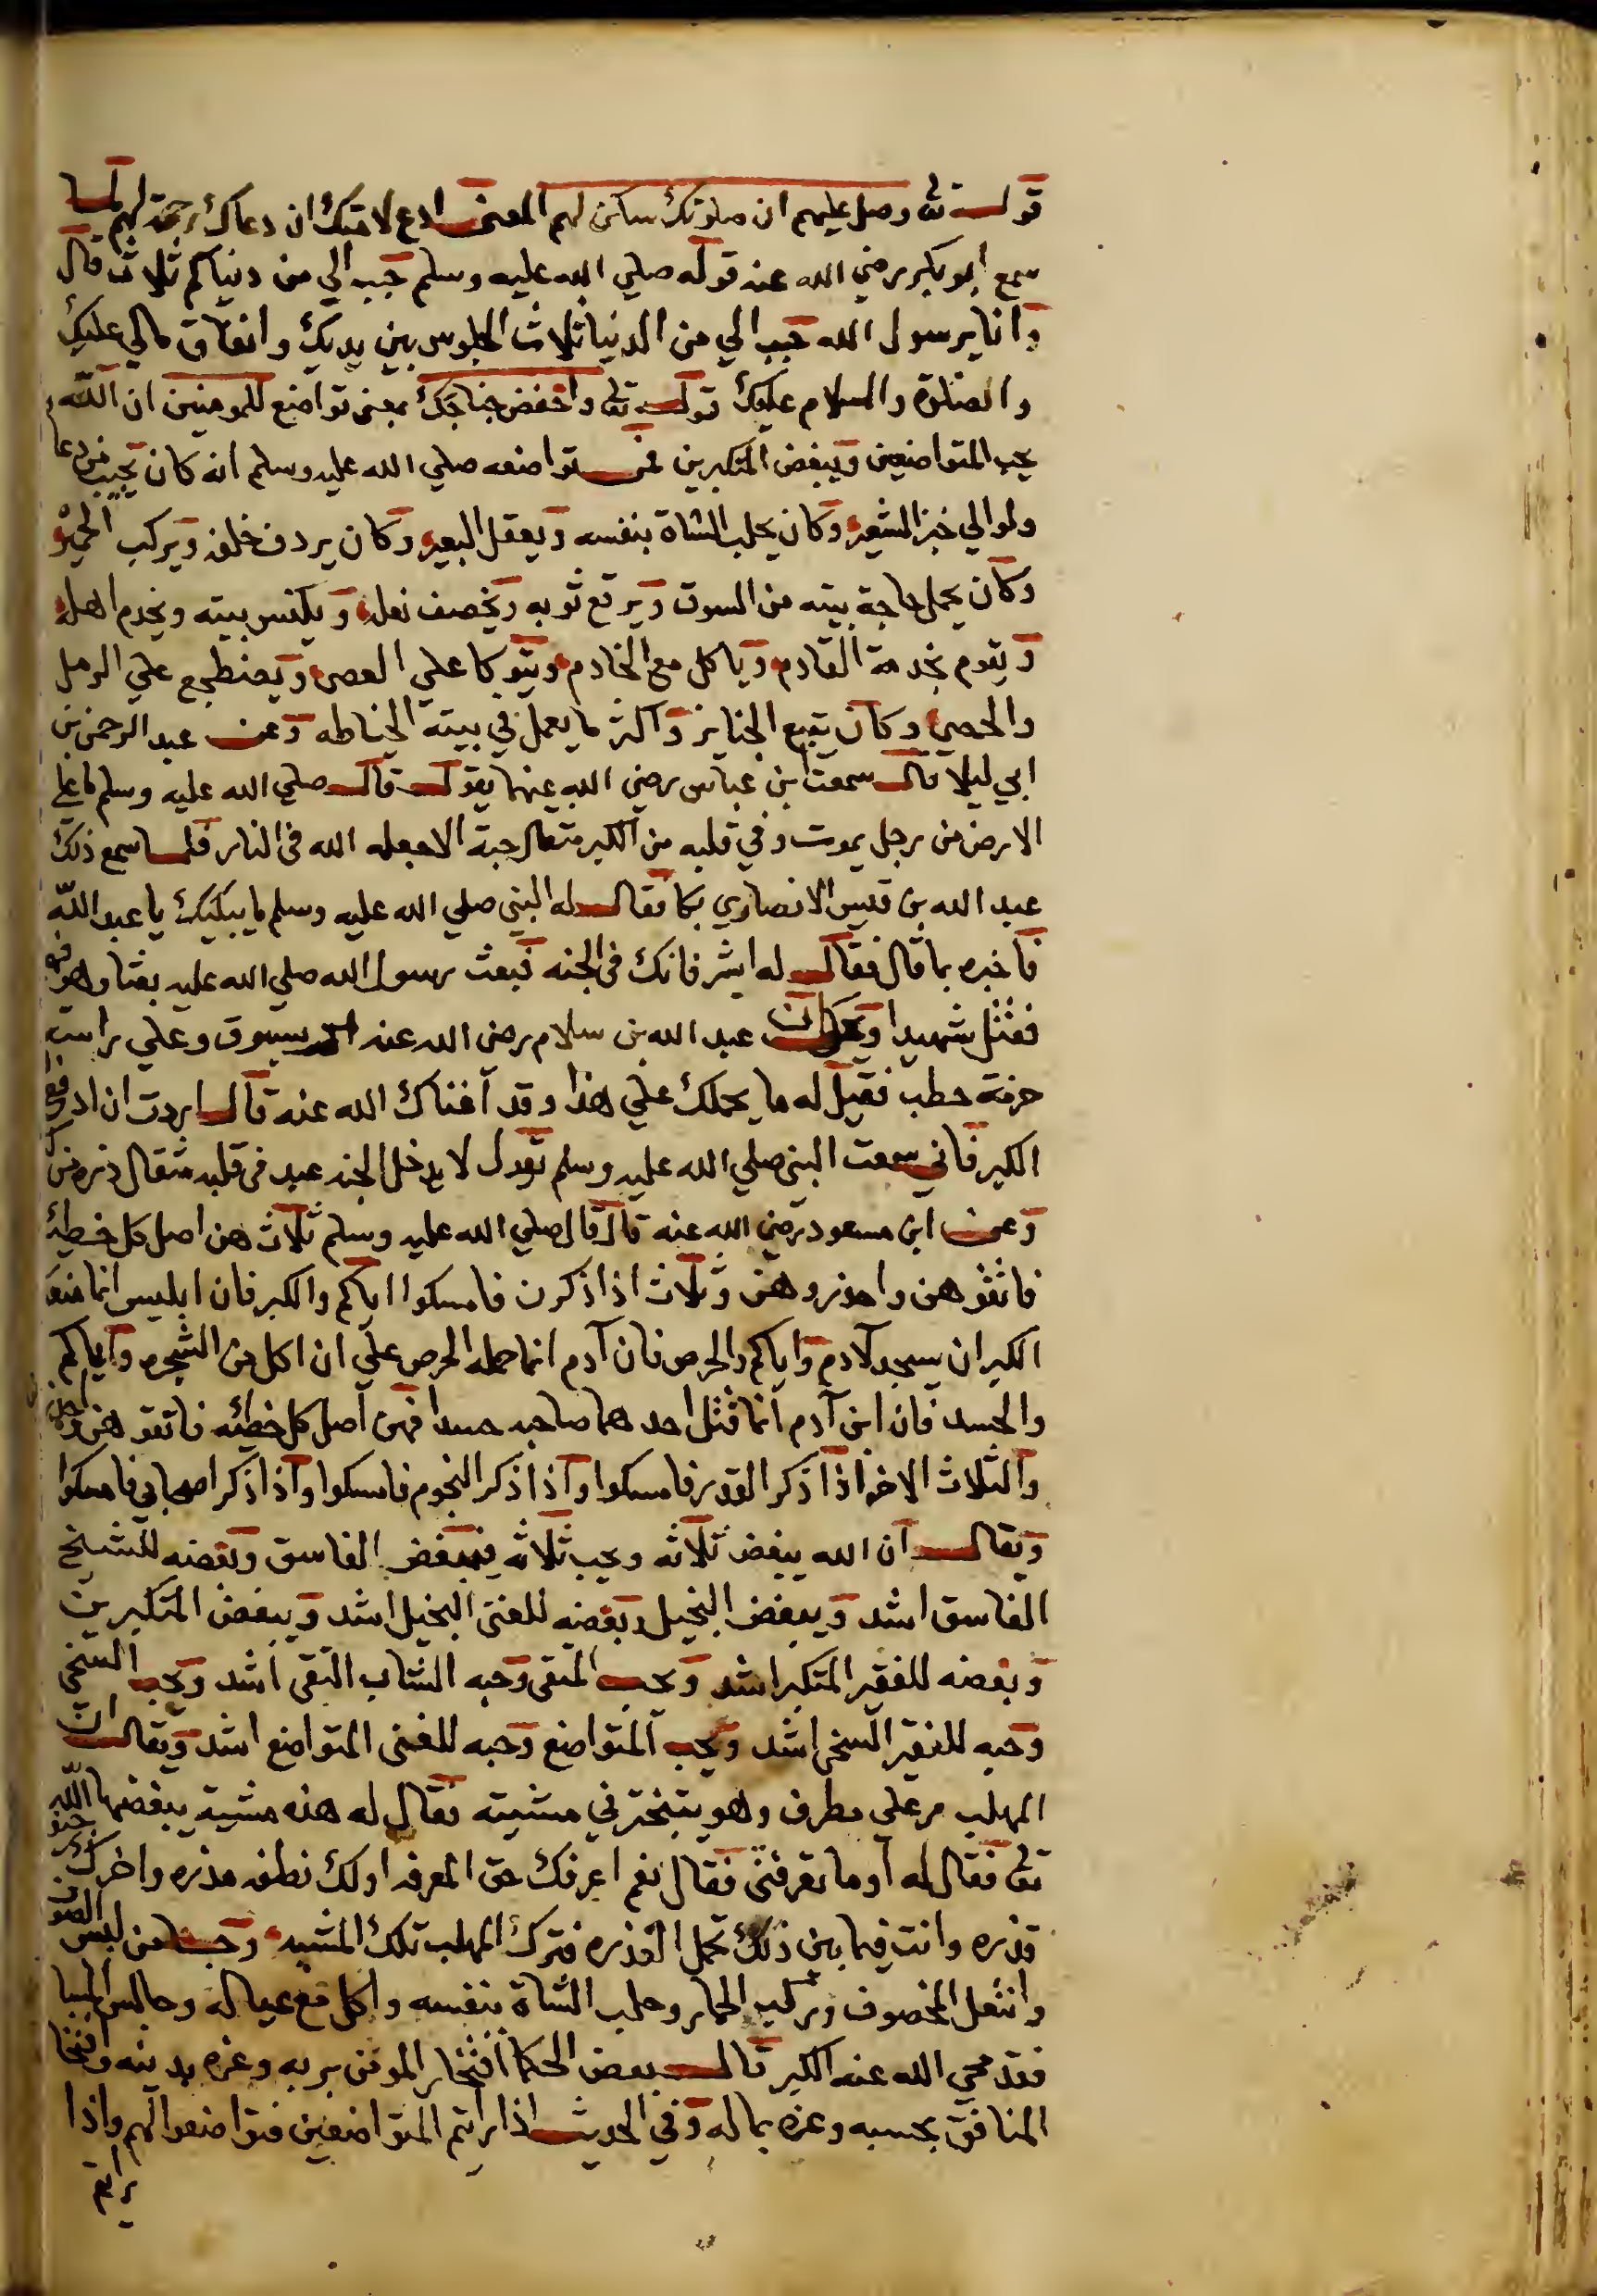 قولـه تعالى وصل عليهم ان صلوتك سكن لهم المعنى ادع لامتك ان دعاك رحمة لهم لما
سمع ابو بكر رضي الله عنه قوله صلي الله عليه وسلم حبب الي من دنياكم ثلاث قال
وانا يرسول الله حبب الي من الدنيا ثلاث الجلوس بين يديك وانفاق مالي عليك
والصلوة والسلام عليك قولـه تعالى واخفض جناحك بمعنى تواضع للمومنين ان الله
يحب المتواضعين ويبغض المتكبرين فمن تواضعه صلي الله عليه وسلم انه كان يجيب من دعا
ولو الي خبز الشعير وكان يحلب الشاة بنفسه ويعقل البعير وكان يردف خلفه ويركب الحمير
وكان يحمل حاجة بيته من السوق ويرقع ثوبه ويخصف نعله ويكنس بيته ويخدم اهله
ويقوم بخدمة القادم وياكل مع الخادم ويتوكا علي العصى ويضطجع علي الرمل
والحصي وكان يتبع الجنايز واكثر ما يعمل في بيته الخياطه وعن عبد الرحمن بن
ابي ليلا قال سمعت ابن عباس رضي الله عنهما يقول قال صلي الله عليه وسلم ما علي
الارض من رجل يموت وفي قلبه من الكبر مثقال حبة الا جعله الله في النار فلما سمع ذلك
عبد الله بن قيس الانصاري بكا فقال له النبي صلي الله عليه وسلم ما يبكيك يا عبد الله
فاخبره بما قال فقال له ابشر فانك في الجنه فبعث رسول الله صلي الله عليه بعثا وهو فيه
فقتل شهيدا وكان عبد الله بن سلام رضي الله عنه بسوق وعلي راسه
حزمة حطب فقيل له ما يحملك علي هذا وقد اغناك الله عنه قال اردت ان ادفع
الكبر فاني سمعت النبي صلي الله عليه وسلم يقول لا يدخل الجنه عبد في قلبه مثقال ذره من كبر
وعن ابن مسعود رضي الله عنه قال قال صلي الله عليه وسلم ثلاث هن اصل كل خطيئه
فاتقوهن واحذروهن وثلاث اذا ذكرن فامسكوا اياكم والكبر فان ابليس انما منعه
الكبر ان يسجد لآدم واياكم والحرص فان آدم انما حمله الحرص علي ان اكل من الشجره واياكم
والحسد فان ابن آدم انما قتل احدهما صاحبه حسدا فهن اصل كل خطيئه فاتقوهن واحذروهن
والثلاث الاخر اذا ذكر القدر فامسكوا واذا ذكر النجوم فامسكوا واذا ذكر اصحابي فامسكوا
ويقال ان الله يبغض ثلاثه ويحب ثلاثه فيبغض الفاسق وبغضه للشيخ
الفاسق اشد ويبغض البخيل وبغضه للغنى البخيل اشد ويبغض المتكبرين
وبغضه للفقير المتكبر اشد ويحب المتقى وحبه الشاب التقى اشد ويحب السخى
وحبه للفقير السخى اشد ويحب المتواضع وحبه للغنى المتواضع اشد ويقال ان
المهلب مر على مطرف وهو يتبختر في مشيته فقال له هذه مشية يبغضها الله
تعالى فقال له أوما تعرفنى فقال نعم اعرفك حق المعرفه اولك نطفه مذره واخرك جيفه
قذره وانت فيما بين ذلك تحمل القذره فترك المهلب تلك المشيه من لبس الصوف
وانتعل المخصوف وركب الحمار وحلب الشاة بنفسه واكل مع عياله وجالس المسا
فقد محي الله عنه الكبر قال بعض الحكما افتخار المومن بربه وعزه بدينه وافتخا
المنافق بحسبه وعزه بماله وفي الحديث اذا رايتم المتواضعين فتواضعوا لهم واذا
رايتم